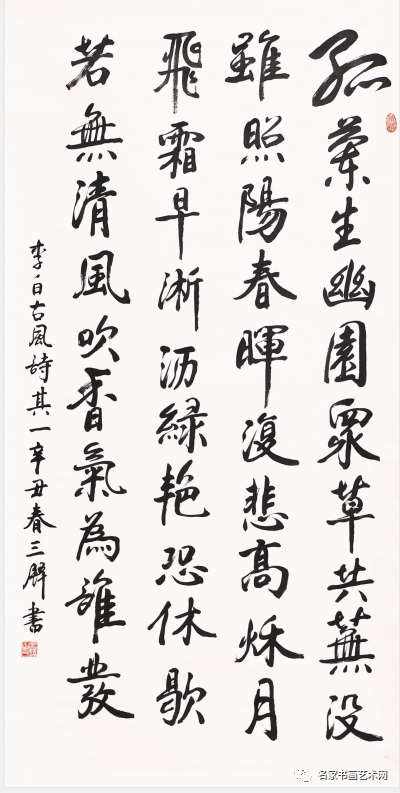 孤蘭生幽園眾草共蕪没
雖照陽春暉復悲高秋月
飛霜早淅沥緑艳恐休歇
若無清風吹香氣為誰發
李白古風詩其一辛丑春三書
名家书画艺术网